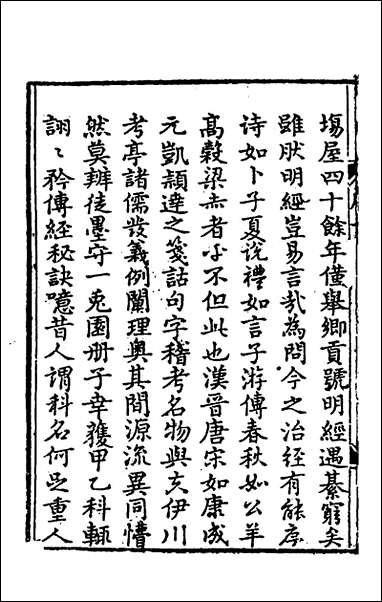 塲屋四十餘年僅舉鄉貢號明經遇綦窮矣
雖肰明經豈易言㢤為問今之治經有能序
诗如卜子夏说禮如言子游傳春秋如公羊
髙榖梁赤者乎不但此也漢晉唐宋如康成
元凱頴逹之箋詁句字稽考名物與夫伊川
考亭諸儒發義例闡理奧其間源流異同懵
然莫辨徒墨守一兎園册子幸獲甲乙科輙
詡〻矜傳經秘訣噫昔人謂科名何足重人